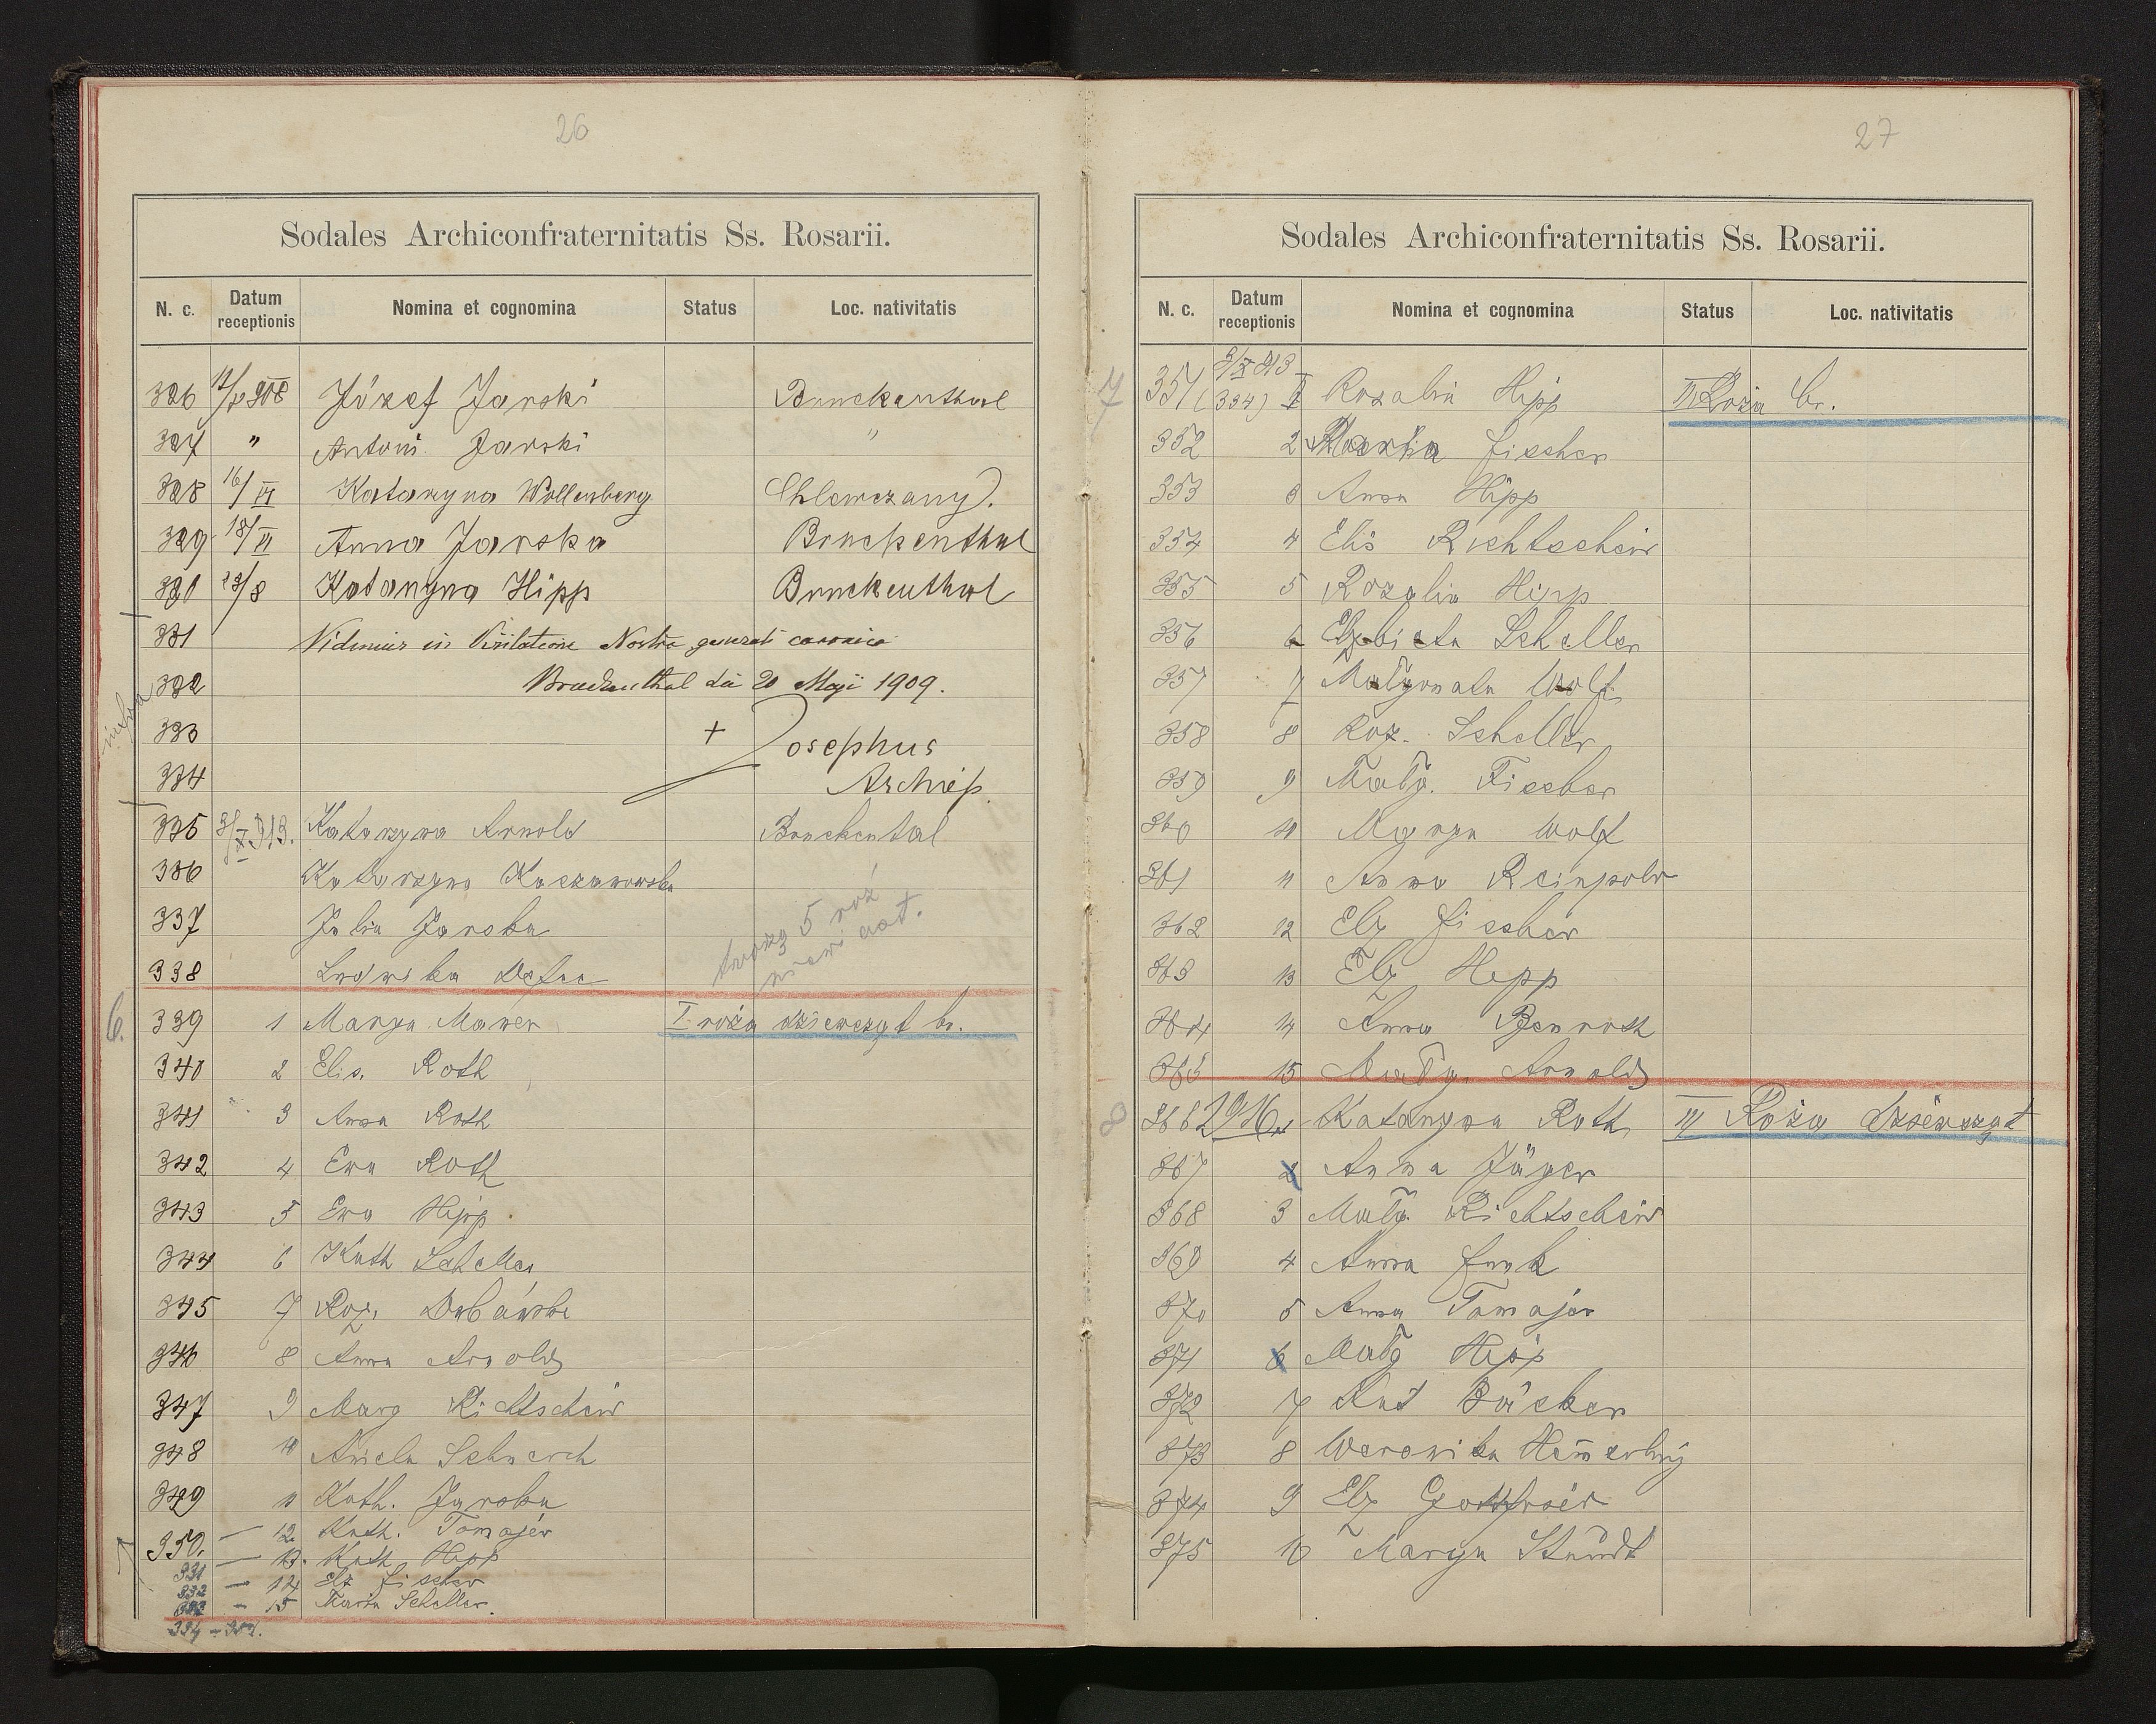 26
Sodales Archiconfraternitatis Ss. Rosarii.
N. c. Datum receptionis Nomina et cognomina Status Loc. nativitatis
326 908 Józef Jarski Bruckenthal
327 " Antoni Jarski "
328 16/VI Katarzyna Wollenberg Chlewczany.
329 18/VI Anna Jarska Bruckenthal
330 Katarzyna Hipp Bruckenthal
331 Vidimus in Visitatione Nostra generali canonica
332 Bruckenthal die 20 Maji 1909.
333 + Josephus
334 Archiep.
infra
335 3/X 913. Katarzyna Arnold Bruckental
336 Katarzyna Kaszanowska
337 Julia Jarska
338 Ludwika
tworzą 5 róż
niewiast.
6. 339 1 Marya Maner I róża dziewcząt br.
340 2 Elis. Roth
341 3 Anna Roth
342 4 Ewa Roth
343 5 Ewa Hipp
344 6 Kath Scheller
345 7 Roz.
346 8 Anna Arnold
347 9 Marg Richtscheid
348 10 Aniela Schnerch
349 11 Kath. Jarska
350. — 12 Kath. Tomajer
331 — 13. Kath. Hipp
332 — 14 Elz Fischer
333 — 15 Maria Scheller.
334
27
Sodales Archiconfraternitatis Ss. Rosarii.
N. c. Datum receptionis Nomina et cognomina Status Loc. nativitatis
7 351 (334) 3/X 913 1 Rozalia Hipp II Róża br.
352 2 Marya Fischer
353 3 Anna Hipp
354 4 Elis Richtscheid
355 5 Rozalia Hipp
356 6 Elżbieta Scheller
357 7 Małgorzata Wolf
358 8 Roz. Scheller
359 9 Małg. Fischer
360 10 Marya Wolf
361 11 Anna Reinpold
362 12 Elz Fischer
363 13 Elz Hipp
364 14 Anna Benroth
365 15 Małg. Arnold
8 366 1 Katarzyna Roth III Róża dziewcząt
367 2 Anna Jäger
368 3 Małg. Richtscheid
369 4 Anna Funk
370 5 Anna Tomajer
371 6 Małg Hipp
372 7 Kat Bäcker
373 8 Weronika Hem̄erling
374 9 Elz Gottfried
375 10 Marya